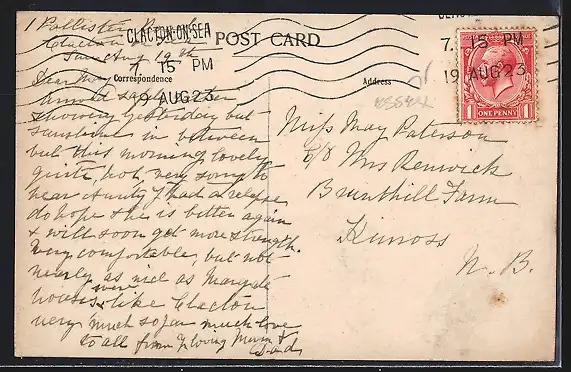 1 Pollister Road
Clacton
Sunday 19th
CLACTON-ON-SEA
7. 15 PM
19 AUG 23
POST CARD
Correspondence
Address
7. 15 PM
19 AUG 23
1 ONE PENNY 1
Dear May
Arrived safe
showery yesterday but
sunshine in between
but this morning lovely
quite hot, very sorry to
hear Aunty J had a relapse
do hope she is better again
& will soon get more strength.
Very comfortable, but not
nearly as nice as Margate
houses, like Clacton
very much so far much love
to all from yr loving Mum &
Dad
Miss May Paterson
c/o Mrs Renwick
Brunthill Farm
Kinross
N. B.